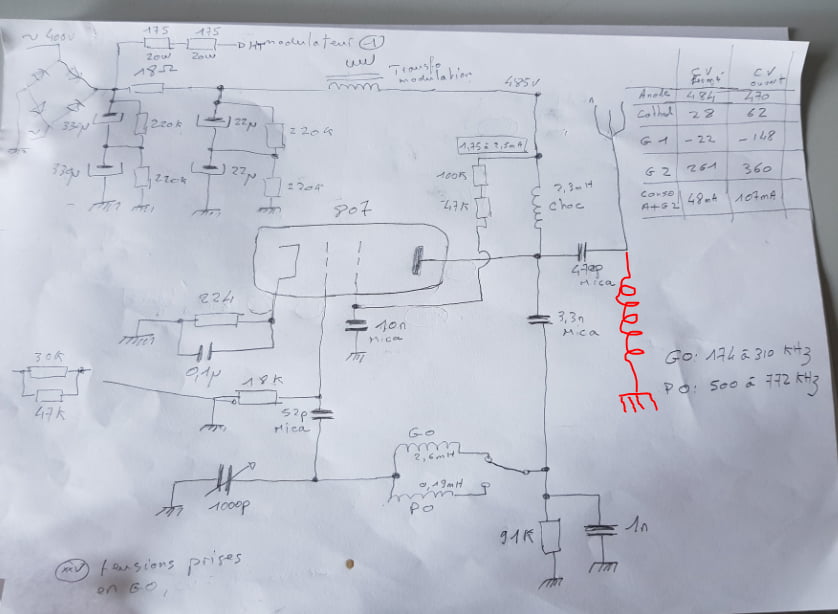 ~ 400V
175 175
20W 20W
DHT modulateur 1
18Ω
Transfo
modulation
485V
330µ
220k
22µ
220k
330µ
220k
22µ
220k
1,75 à 2,5mA
100K
47K
2,3mH
Choc
807
470p
Mica
10n
Mica
3,3n
Mica
0,1µ
30K
47K
18K
52p
Mica
1000p
GO
2,6mH
0,19mH
PO
91K
1n
CV CV
fermé ouvert
Anode 484 470
Cathod 28 62
G1 -22 -148
G2 261 360
Conso
A+G2 48mA 107mA
GO: 174 à 310 KHz
PO: 500 à 772 KHz
tensions prises
en GO,